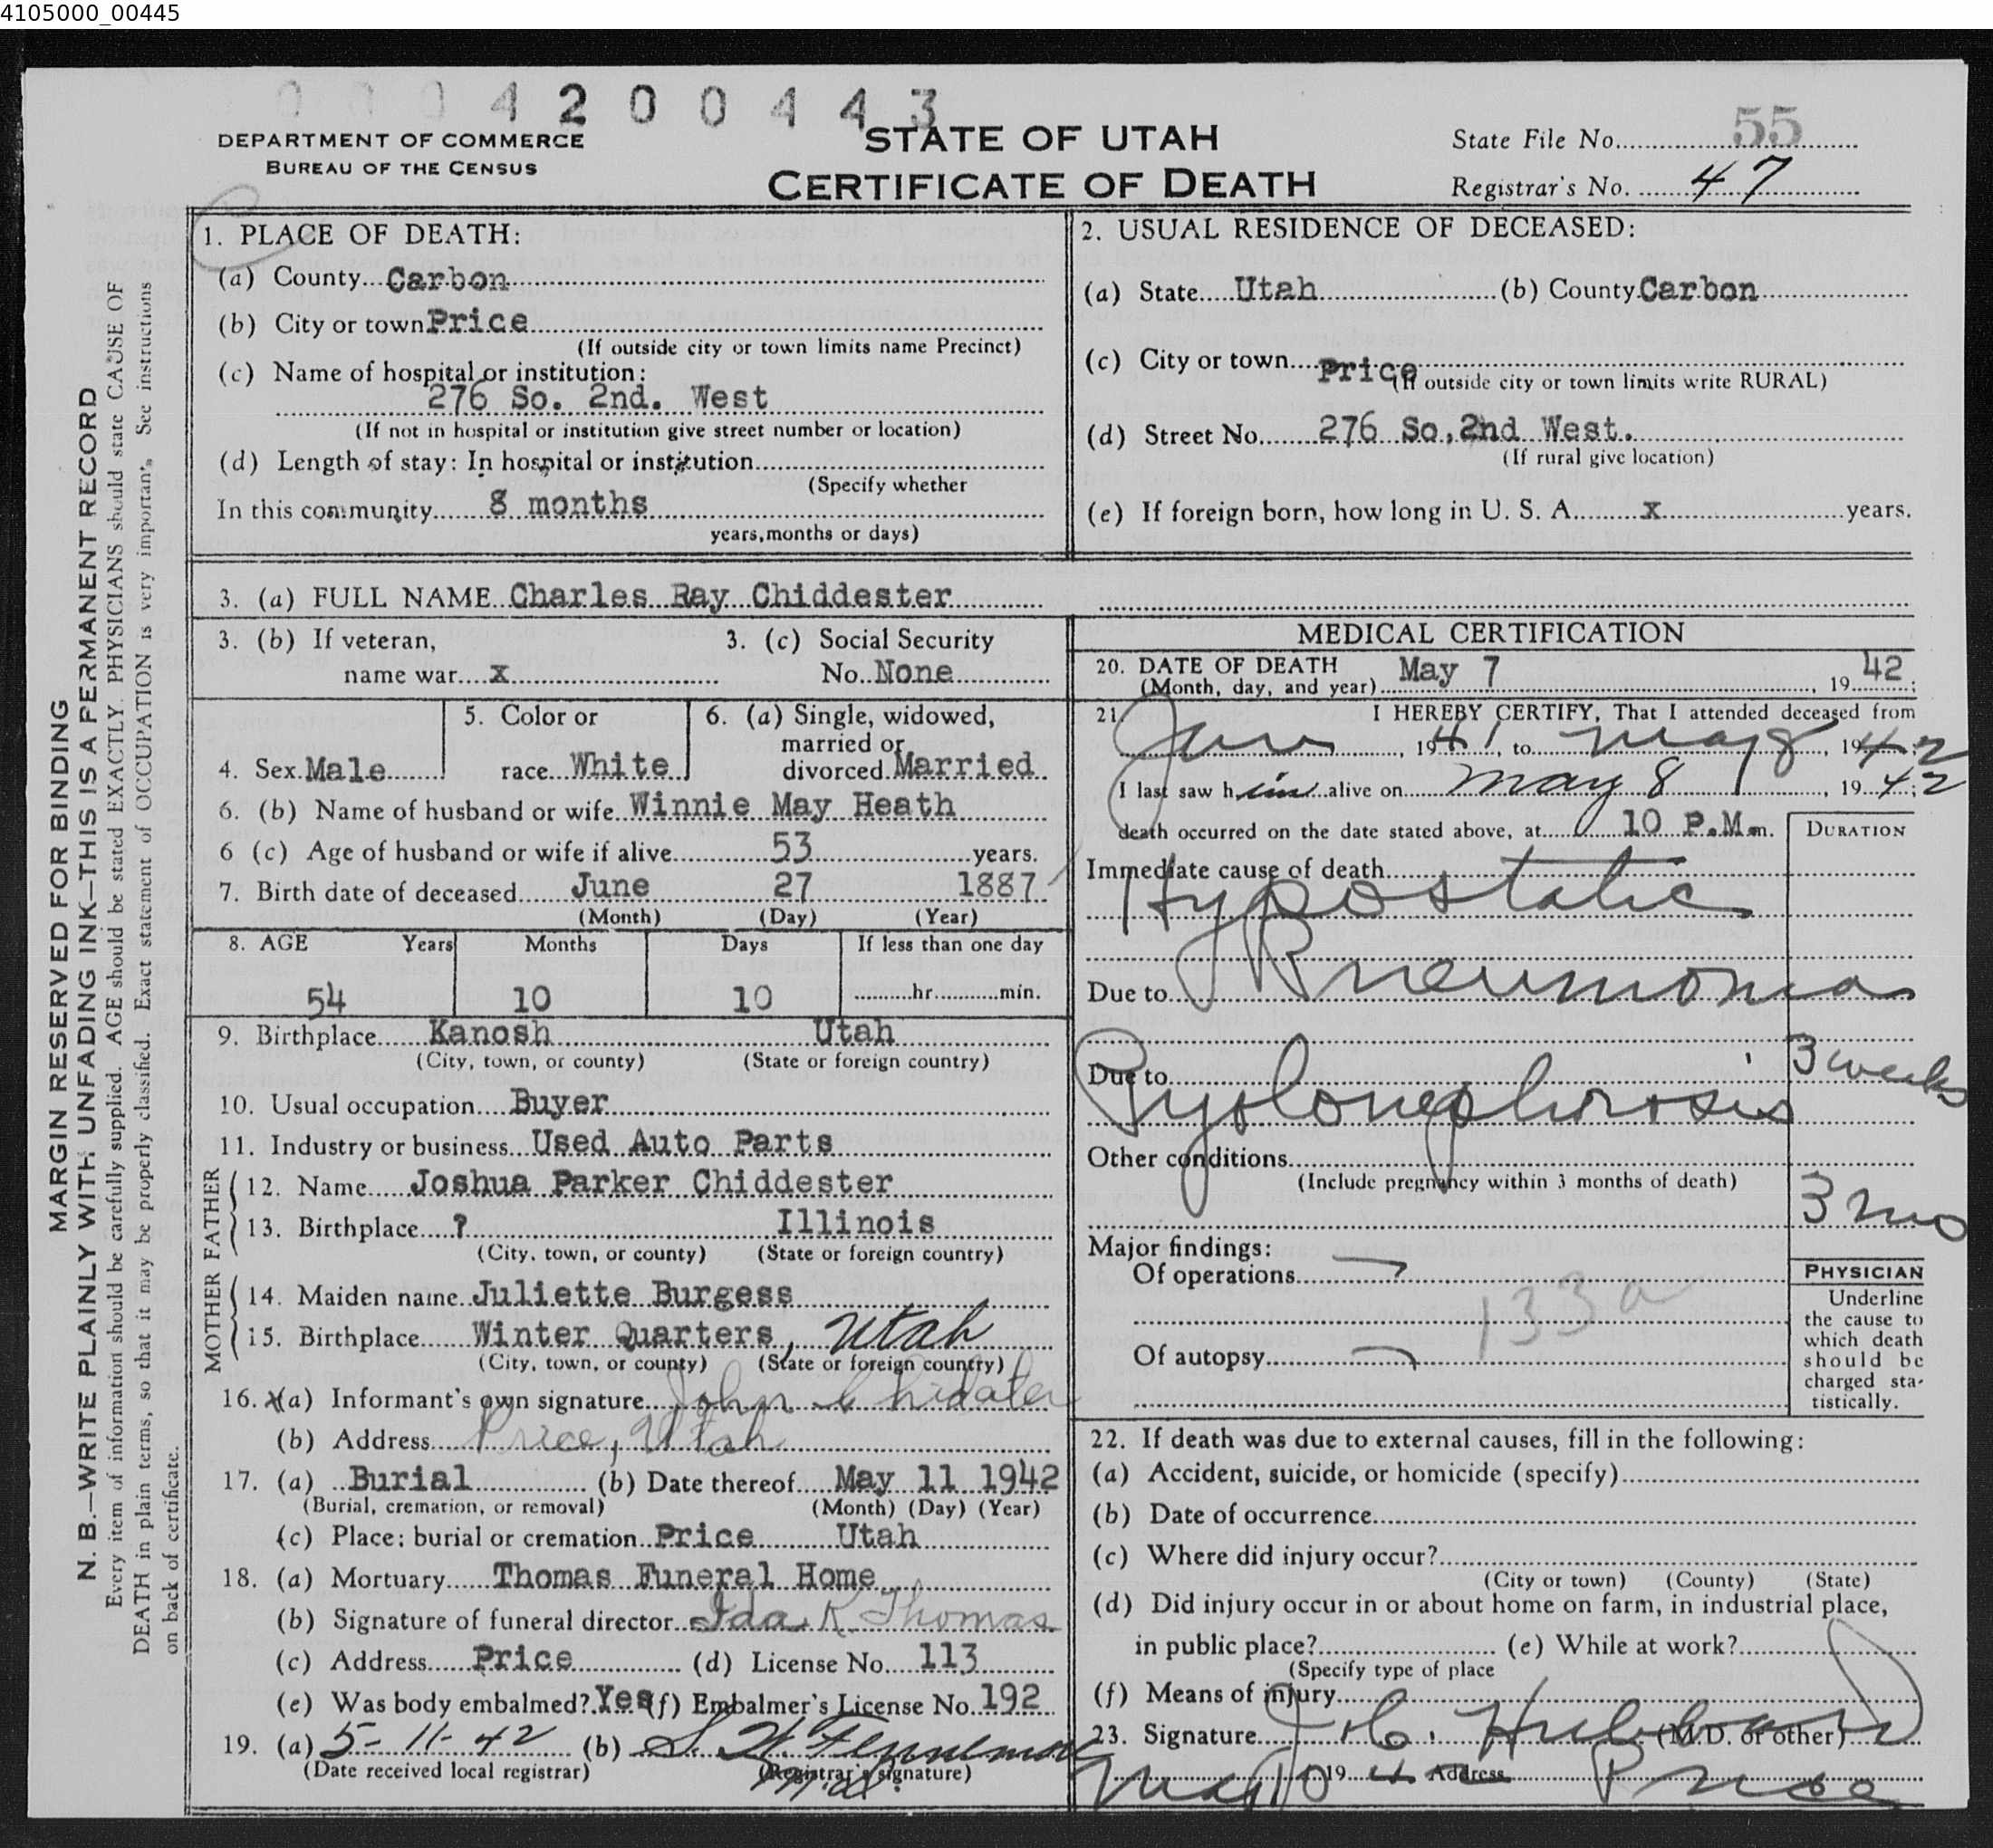 4105000_00445
0004200443
DEPARTMENT OF COMMERCE
BUREAU OF THE CENSUS
STATE OF UTAH
CERTIFICATE OF DEATH
State File No. 55
Registrar's No. 47
MARGIN RESERVED FOR BINDING
N. B.—WRITE PLAINLY WITH UNFADING INK—THIS IS A PERMANENT RECORD
Every item of information should be carefully supplied. AGE should be stated EXACTLY. PHYSICIANS should state CAUSE OF
DEATH in plain terms, so that it may be properly classified. Exact statement of OCCUPATION is very important. See instructions
on back of certificate.
1. PLACE OF DEATH:
(a) County Carbon
(b) City or town Price
(If outside city or town limits name Precinct)
(c) Name of hospital or institution:
276 So. 2nd. West
(If not in hospital or institution give street number or location)
(d) Length of stay: In hospital or institution
(Specify whether
In this community 8 months
years, months or days)
2. USUAL RESIDENCE OF DECEASED:
(a) State Utah (b) County Carbon
(c) City or town Price
(If outside city or town limits write RURAL)
(d) Street No. 276 So, 2nd West.
(If rural give location)
(e) If foreign born, how long in U. S. A. x years.
3. (a) FULL NAME Charles Ray Chiddester
3. (b) If veteran, 3. (c) Social Security
name war x No. None
5. Color or 6. (a) Single, widowed,
married or
4. Sex Male race White divorced Married
6. (b) Name of husband or wife Winnie May Heath
6 (c) Age of husband or wife if alive 53 years.
7. Birth date of deceased June 27 1887
(Month) (Day) (Year)
8. AGE Years Months Days If less than one day
54 10 10 hr. min.
9. Birthplace Kanosh Utah
(City, town, or county) (State or foreign country)
10. Usual occupation Buyer
11. Industry or business Used Auto Parts
FATHER
12. Name Joshua Parker Chiddester
13. Birthplace ? Illinois
(City, town, or county) (State or foreign country)
MOTHER
14. Maiden name Juliette Burgess
15. Birthplace Winter Quarters, Utah
(City, town, or county) (State or foreign country)
16. (a) Informant's own signature John Chidster
(b) Address Price, Utah
17. (a) Burial (b) Date thereof May 11 1942
(Burial, cremation, or removal) (Month) (Day) (Year)
(c) Place: burial or cremation Price Utah
18. (a) Mortuary Thomas Funeral Home
(b) Signature of funeral director Ida K Thomas
(c) Address Price (d) License No. 113
(e) Was body embalmed? Yes (f) Embalmer's License No. 192
19. (a) 5-11-42 (b) S. W. Fennemore
(Date received local registrar) (Registrar's signature)
M.d.
MEDICAL CERTIFICATION
20. DATE OF DEATH May 7
(Month, day, and year) , 19 42;
21. I HEREBY CERTIFY, That I attended deceased from
Jan, 1941, to May 8, 1942;
I last saw him alive on May 8, 1942;
death occurred on the date stated above, at 10 P.M. m.
DURATION
Immediate cause of death
Hypostatic
Pneumonia
Due to
Due to 3 weeks
Pyelonephrosis
Other conditions
(Include pregnancy within 3 months of death)
3 mo
Major findings:
Of operations
133a
Of autopsy
PHYSICIAN
Underline
the cause to
which death
should be
charged sta-
tistically.
22. If death was due to external causes, fill in the following:
(a) Accident, suicide, or homicide (specify)
(b) Date of occurrence
(c) Where did injury occur?
(City or town) (County) (State)
(d) Did injury occur in or about home on farm, in industrial place,
in public place? (e) While at work?
(Specify type of place
(f) Means of injury
23. Signature J. C. Hubbard (M.D. or other)
May 10 1942 Address Price